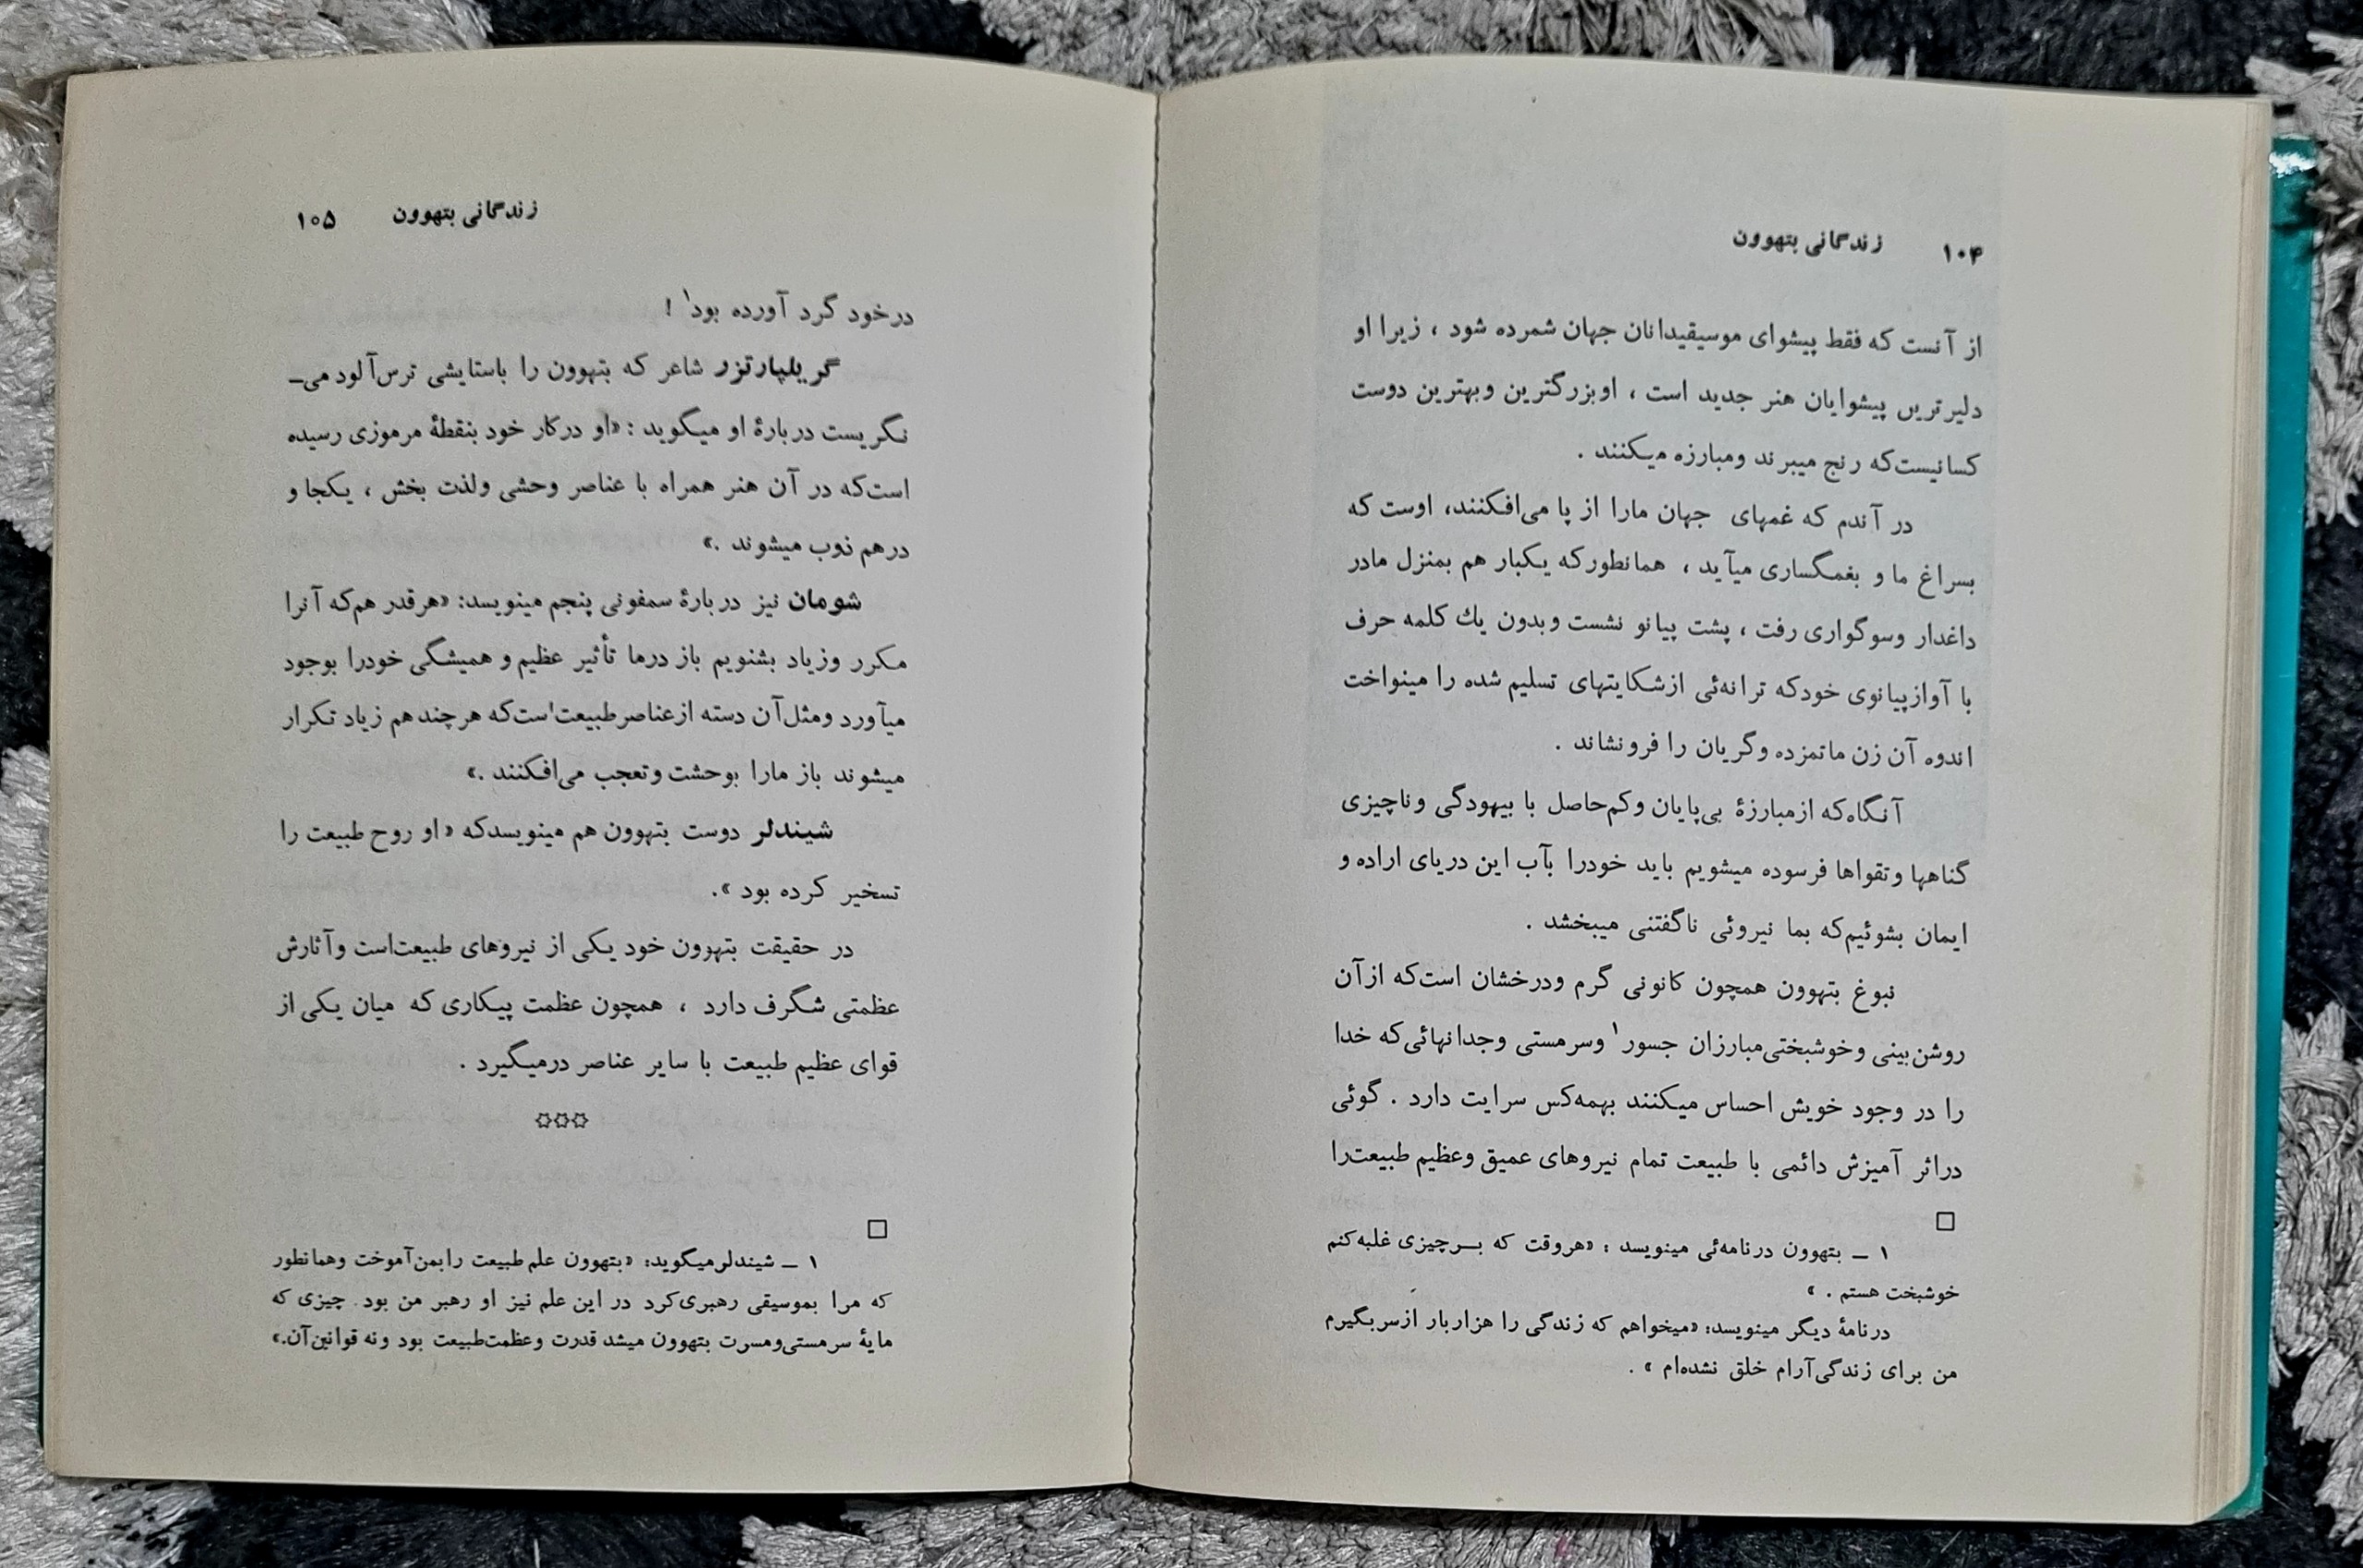 ۱۰۴ زندگانی بتهوون
از آنست که فقط پیشوای موسیقیدانان جهان شمرده شود ، زیرا او
دلیرترین پیشوایان هنر جدید است ، اوبزرگترین وبهترین دوست
کسانیست‌که رنج میبرند ومبارزه میکنند .
در آندم که غمهای جهان مارا از پا می‌افکنند، اوست که
بسراغ ما و بغمگساری میآید ، همانطورکه یکبار هم بمنزل مادر
داغدار وسوگواری رفت ، پشت پیانو نشست وبدون یك کلمه حرف
با آوازپیانوی خودکه ترانه‌ئی ازشکایتهای تسلیم شده را مینواخت
اندوه آن زن ماتمزده وگریان را فرونشاند .
آنگاه‌که ازمبارزۀ بی‌پایان وکم‌حاصل با بیهودگی وناچیزی
گناهها وتقواها فرسوده میشویم باید خودرا بآب این دریای اراده و
ایمان بشوئیم‌که بما نیروئی ناگفتنی میبخشد .
نبوغ بتهوون همچون کانونی گرم ودرخشان است‌که ازآن
روشن‌بینی وخوشبختی‌مبارزان جسور۱ وسرمستی وجدانهائی‌که خدا
را در وجود خویش احساس میکنند بهمه‌کس سرایت دارد . گوئی
دراثر آمیزش دائمی با طبیعت تمام نیروهای عمیق وعظیم طبیعت‌را
۱ ــ بتهوون درنامه‌ئی مینویسد : «هروقت که بــرچیزی غلبه‌کنم
خوشبخت هستم . »
درنامۀ دیگر مینویسد: «میخواهم که زندگی را هزاربار ازسربگیرم
من برای زندگی‌آرام خلق نشده‌ام » .
زندگانی بتهوون ۱۰۵
درخود گرد آورده بود۱ !
گریلپارتزر شاعر که بتهوون را باستایشی ترس‌آلود می‌ـ
نگریست دربارۀ او میگوید : «او درکار خود بنقطۀ مرموزی رسیده
است‌که در آن هنر همراه با عناصر وحشی ولذت بخش ، یکجا و
درهم ذوب میشوند .»
شومان نیز دربارۀ سمفونی پنجم مینویسد: «هرقدر هم‌که آنرا
مکرر وزیاد بشنویم باز درما تأثیر عظیم و همیشگی خودرا بوجود
میآورد ومثل‌آن دسته ازعناصرطبیعت‌است‌که هرچندهم زیاد تکرار
میشوند باز مارا بوحشت وتعجب می‌افکنند .»
شیندلر دوست بتهوون هم مینویسدکه «او روح طبیعت را
تسخیر کرده بود ».
در حقیقت بتهوون خود یکی از نیروهای طبیعت‌است وآثارش
عظمتی شگرف دارد ، همچون عظمت پیکاری که میان یکی از
قوای عظیم طبیعت با سایر عناصر درمیگیرد .
✡✡✡
۱ ــ شیندلرمیگوید: «بتهوون علم طبیعت رابمن‌آموخت وهمانطور
که مرا بموسیقی رهبری‌کرد در این علم نیز او رهبر من بود. چیزی که
مایۀ سرمستی‌ومسرت بتهوون میشد قدرت وعظمت‌طبیعت بود ونه قوانین‌آن.»